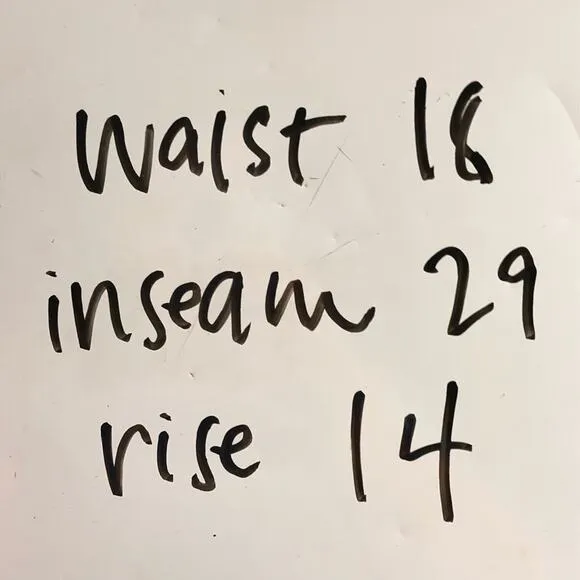 waist 18
inseam 29
rise 14